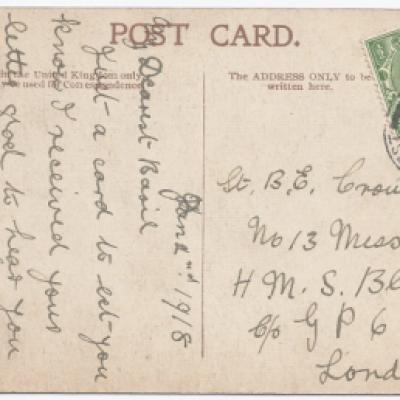 POST CARD.
in the United Kingdom only
be used for Correspondence
The ADDRESS ONLY to be
written here.
Jan 2nd 1918
My Dearest Basil
Just a card to let you
know I received your
letter glad to hear you
St. B. E. Crow
No 13 Mess
H M. S. Bl
c/o G P 6
Lond